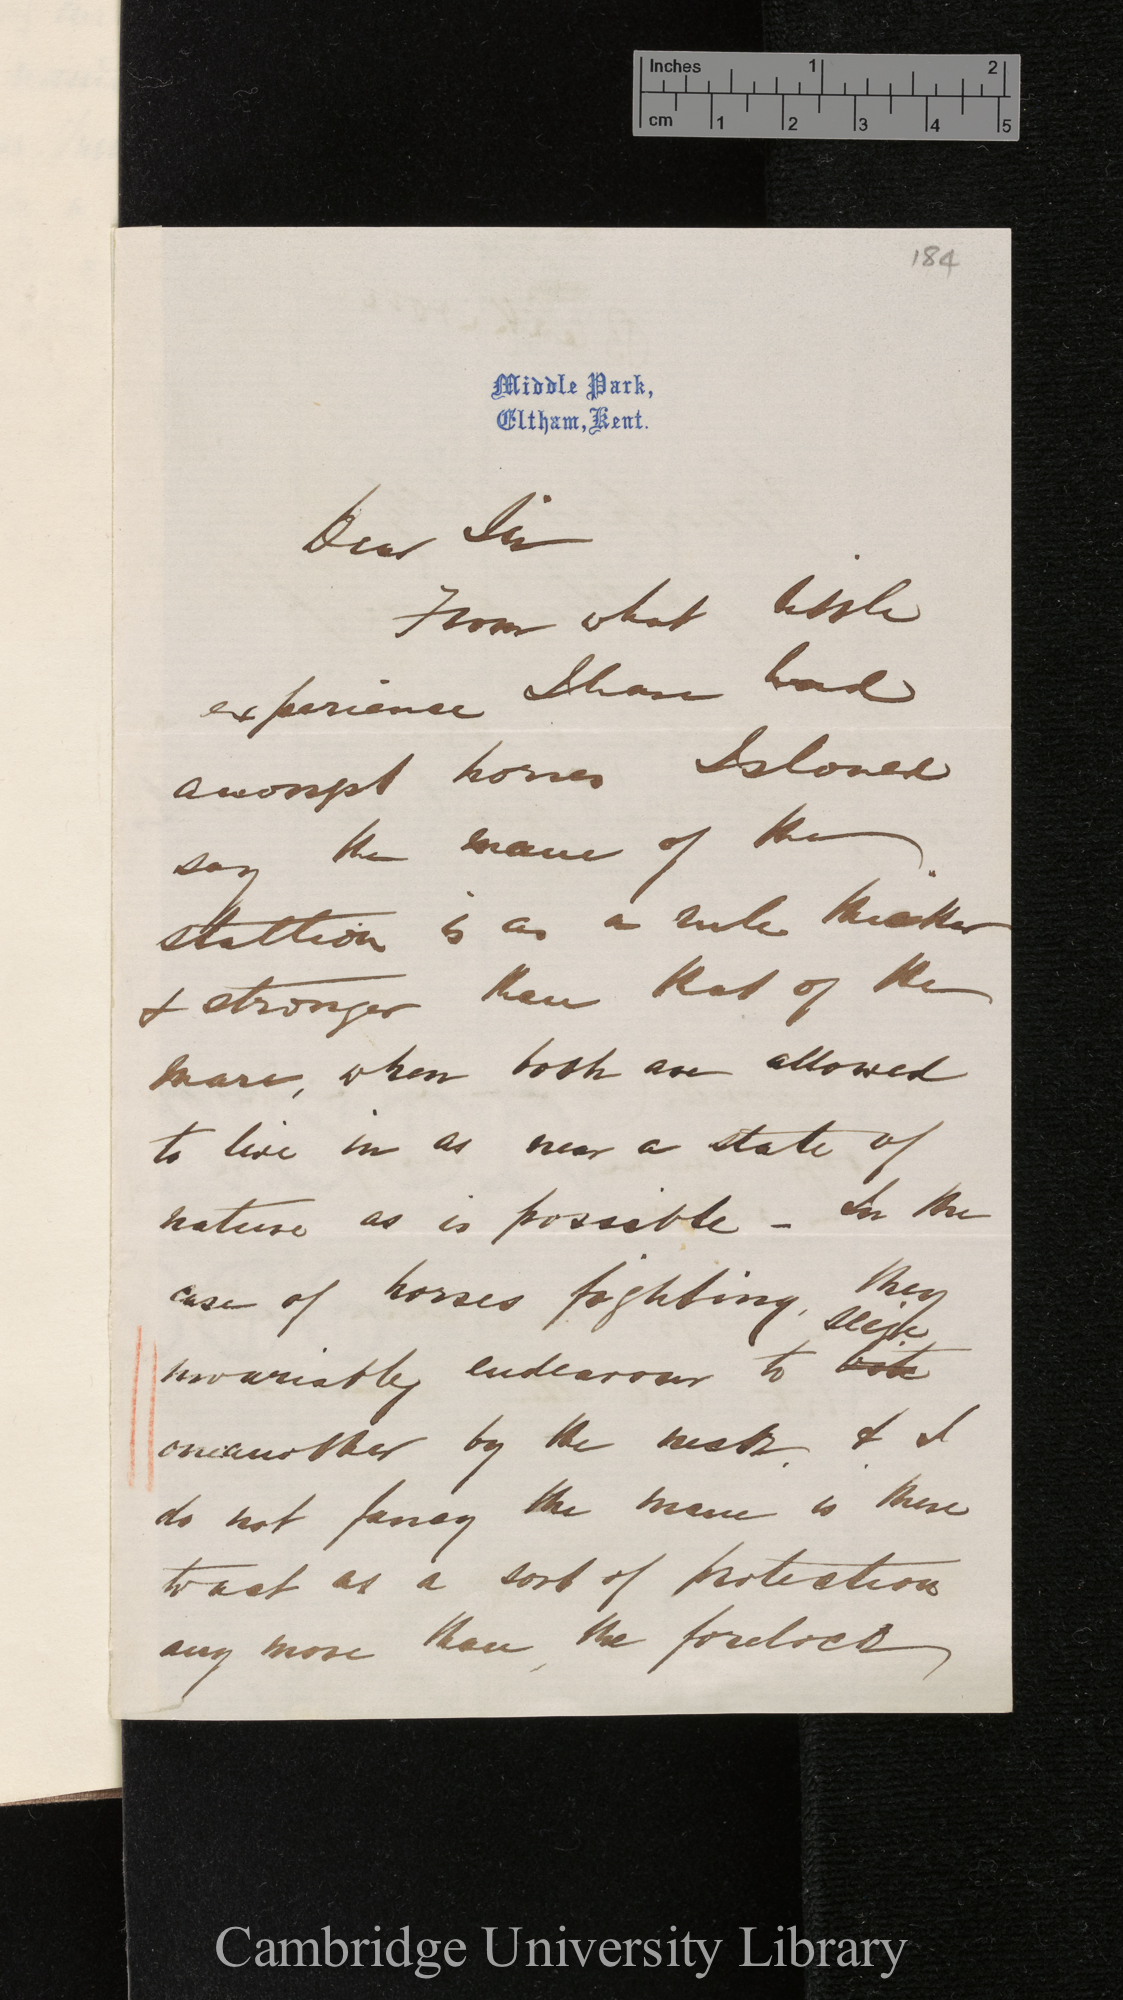 Inches 1 2
cm 1 2 3 4 5
184
Middle Park,
Eltham, Kent.
Dear Sir
From what little
experience I have had
amongst horses I should
say the mane of the
stallion is as a rule thicker
& stronger than that of the
mare, when both are allowed
to live in as near a state of
nature as is possible – In the
case of horses fighting, they
seize
invariably endeavour to bite
oneanother by the neck, & I
do not fancy the mane is there
to act as a sort of protection
any more than, the forelock
Cambridge University Library